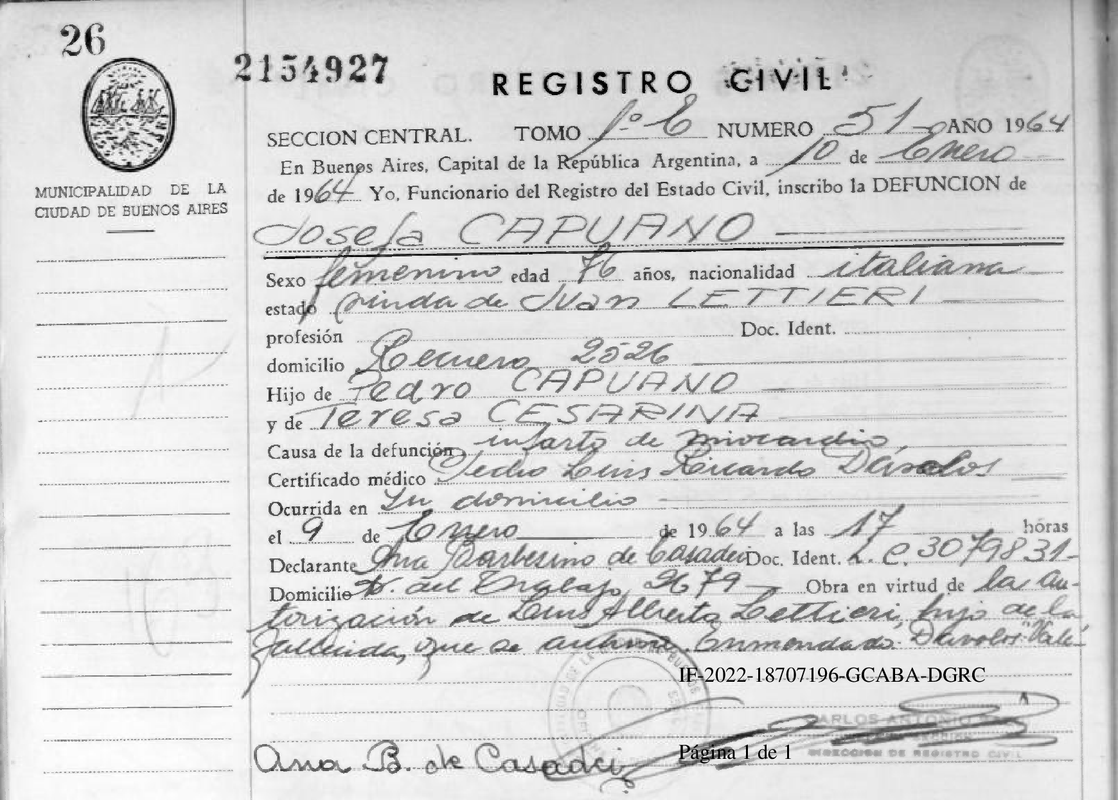 26
2154927
REGISTRO CIVIL
MUNICIPALIDAD DE LA
CIUDAD DE BUENOS AIRES
SECCION CENTRAL. TOMO 1º E NUMERO 51 AÑO 1964
En Buenos Aires, Capital de la República Argentina, a 10 de Enero
de 1964 Yo, Funcionario del Registro del Estado Civil, inscribo la DEFUNCION de
Josefa CAPUANO
Sexo femenino edad 76 años, nacionalidad italiana
estado viuda de Juan LETTIERI
profesión Doc. Ident.
domicilio 2526
Hijo de Pedro CAPUANO
y de Teresa CESARINA
Causa de la defunción infarto de miocardio
Certificado médico Pedro Luis Ricardo Dávolos
Ocurrida en su domicilio
el 9 de Enero de 1964 a las 17 hóras
Declarante Ana Barbesino de Casadei Doc. Ident. L.C. 3079831
Domicilio T. del Trabajo 2679 Obra en virtud de la au-
torización de Luis Alberto Lettieri, hijo de la
fallecida, que se archiva. Enmendado: Dávolos: Vale
IF-2022-18707196-GCABA-DGRC
CARLOS ANTONIO
DIRECCION DE REGISTRO CIVIL
Página 1 de 1
Ana B. de Casadei